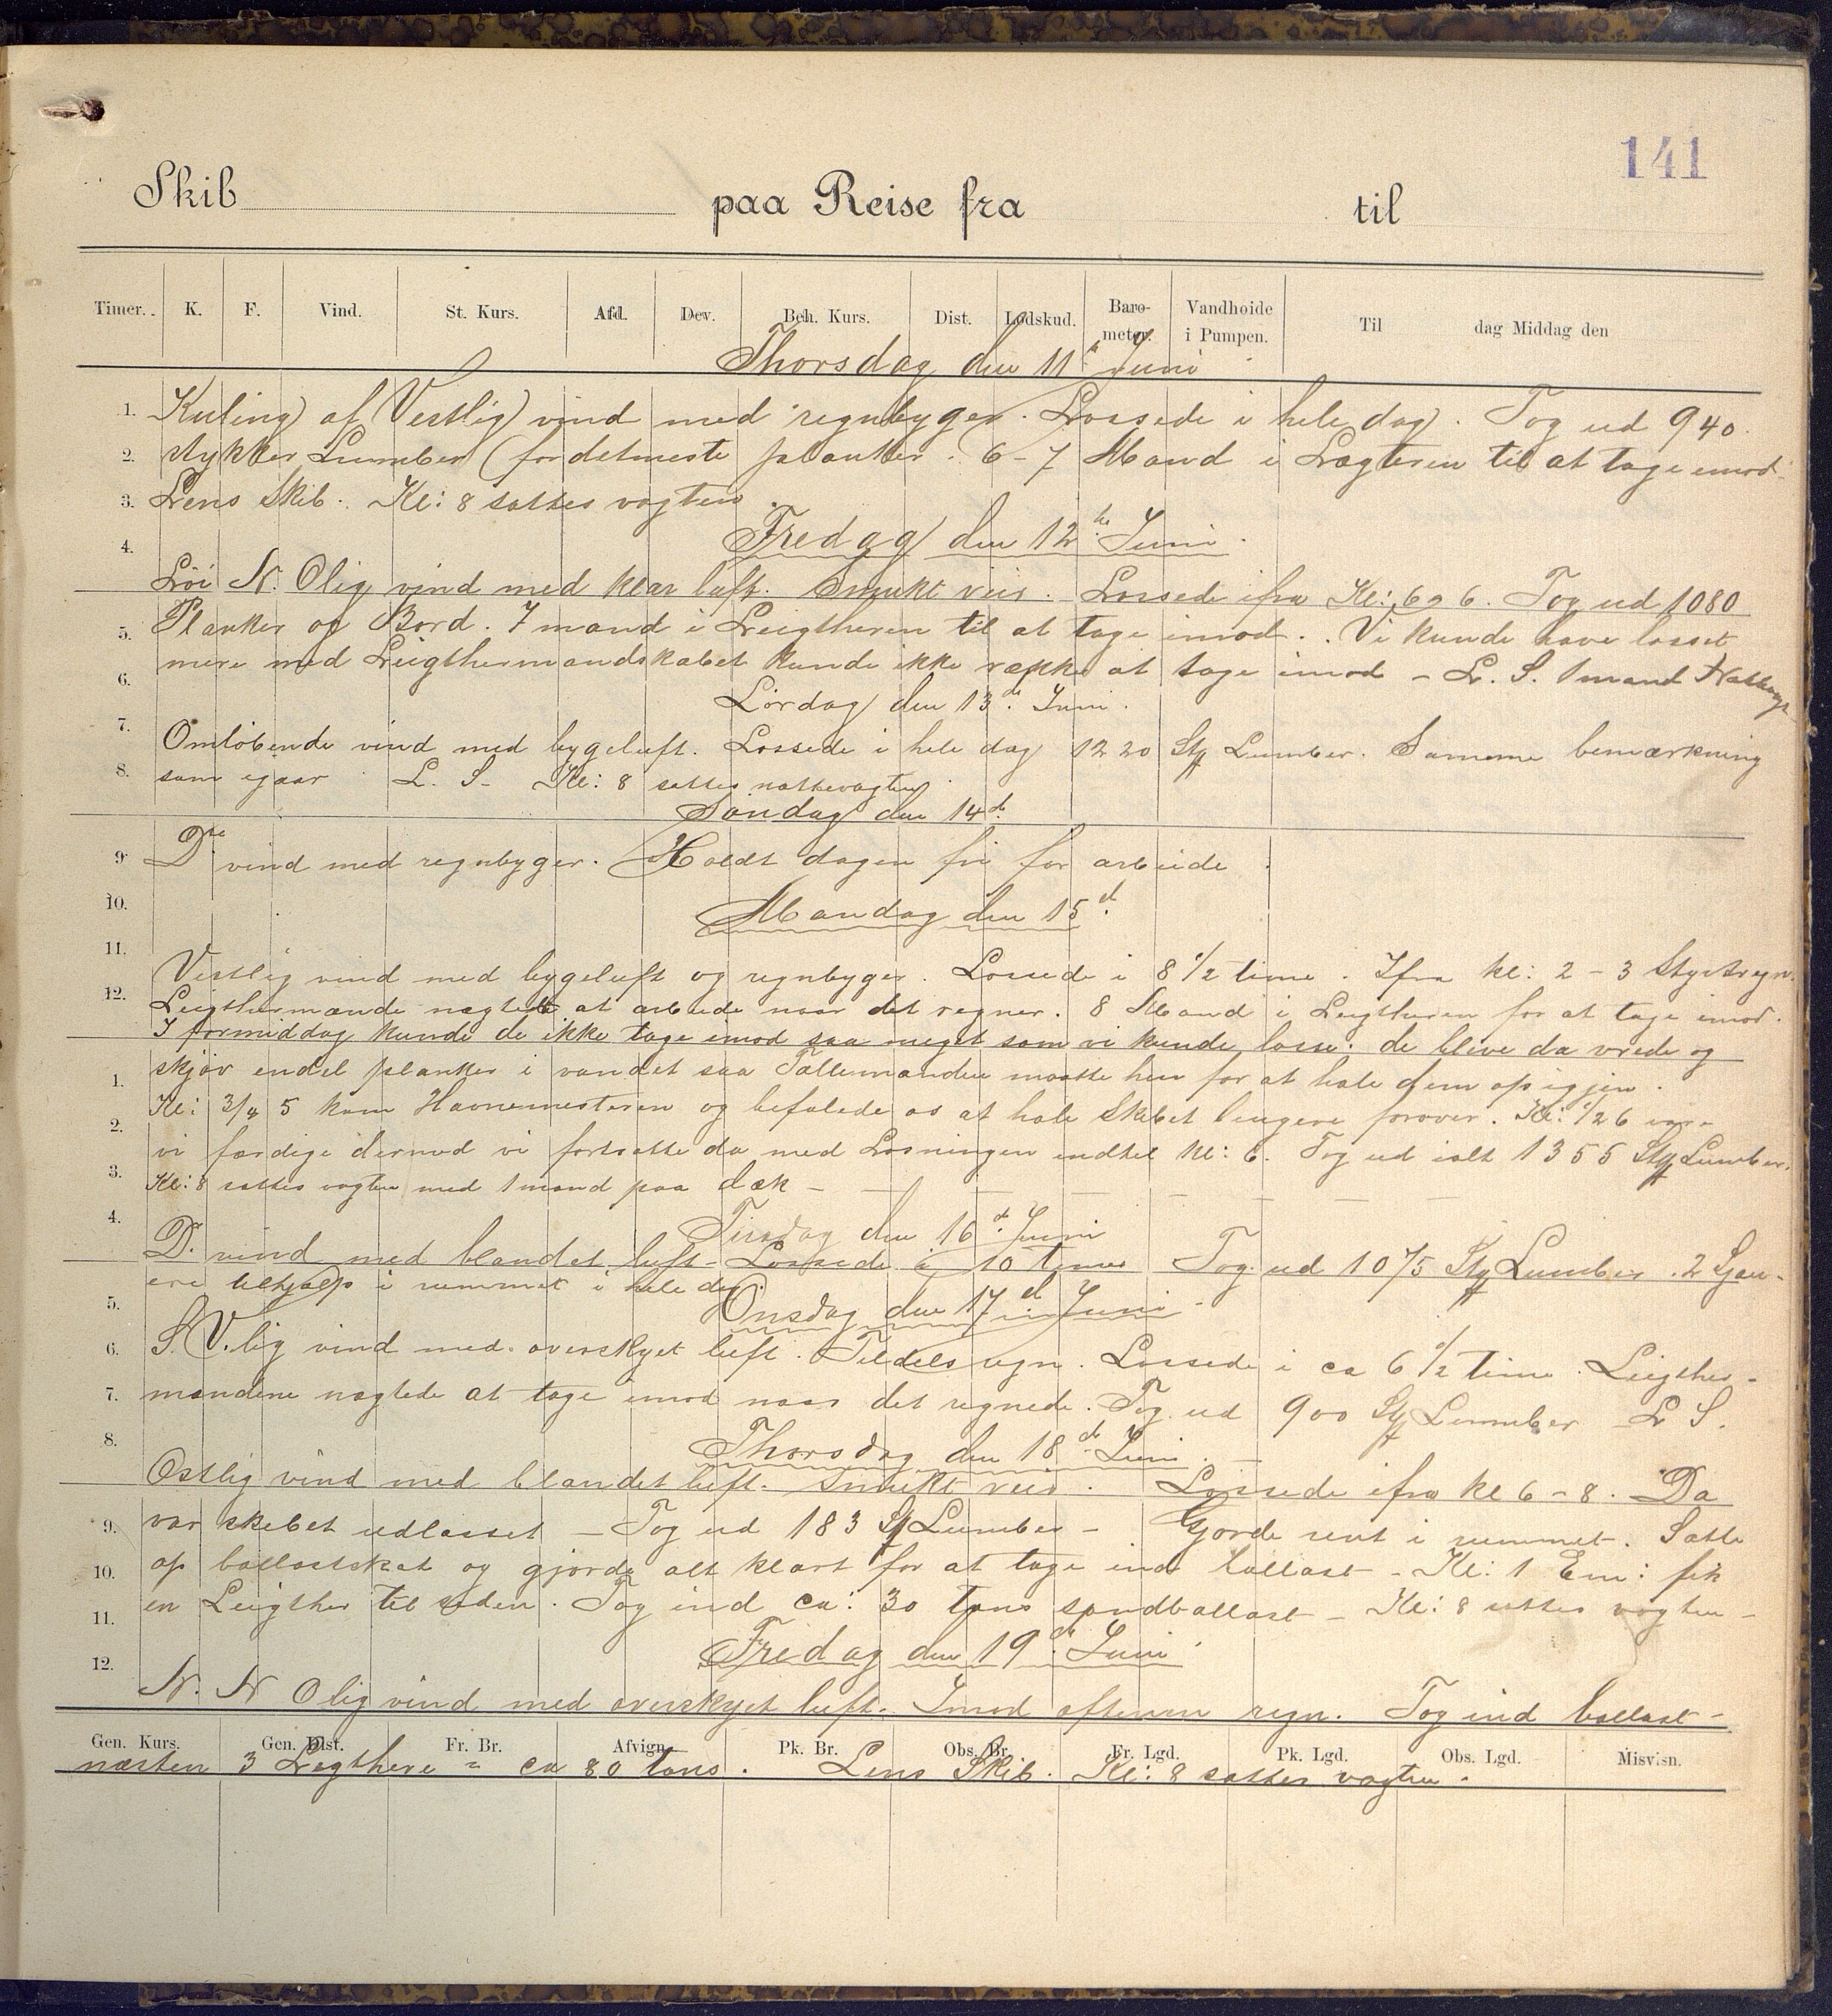 141
Skib paa Reise fra til
Timer. K. F. Vind. St. Kurs. Afd. Dev. Beh. Kurs. Dist. Lodskud. Baro-meter. Vandhoide i Pumpen. Til dag Middag den
Thorsdag den 11te Juni
1. Kuling af Vestlig vind med regnbyger. Lossede i hele dag. Tog ud 940
2. stykker Lumber (for detmeste planker. 6-7 Mand i Lægteren til at tage imod
3. Lens Skib. Kl: 8 sattes vagten
4. Fredag den 12te Juni.
Löi N. Olig vind med klar luft. Smukt veir. Lossede ifra Kl: 6 o 6. Tog ud 1080
5. Planker og Bord. 7 mand i Leigtheren til at tage imod. Vi kunde have losset
6. mere med Leigthermandskabet kunde ikke række at tage imod - L. S. 1 mand Nattevagt
Lördag den 13de Juni.
7. Omlöbende vind med bygeluft. Lossede i hele dag 1220 Stk Lumber. Samme bemærkning
8. som igaar L. S. Kl: 8 sattes nattevagten
Söndag den 14de
9. Do vind med regnbyger. Holdt dagen fri for arbeide.
10. Mandag den 15d.
11. Vestlig vind med bygeluft og regnbyger. Lossede i 8 1/2 time. Ifra kl: 2-3 Styrtregn.
12. Leigthermænde nægtede at arbeide naar det regner. 8 Mand i Leigtheren for at tage imod.
I formiddag kunde de ikke tage imod saa meget som vi kunde losse. de bleve da vrede og
1. skjöv endel planker i vandet saa Tallemanden maatte hen for at hale dem op igjen.
Kl: 3/4 5 kom Havnemesteren og befalede os at hale Skibet lengere forover. Kl: 1/2 6 vare
2. vi færdige dermed vi fortsatte da med Losningen indtil kl: 6. Tog ud ialt 1355 Stk Lumber.
3. Kl: 8 sattes vagten med 1 mand paa dæk -
4. Tirsdag den 16d. Juni
Do. vind med blandet luft - Lossede i 10 timer Tog ud 1075 Stk Lumber. 2 Sjau-
5. ere tilhjælp i rummet i hele dag.
Onsdag den 17de Juni
6. S.V.lig vind med overskyet luft. Tildels regn. Lossede i ca 6 1/2 time. Leigther-
7. mændene nægtede at tage imod naar det regnede. Tog ud 900 Stk Lumber L S.
8. Thorsdag den 18de Juni.
Ostlig vind med blandet luft. Smukt veir. Lossede ifra kl 6-8. Da
9. var skibet udlosset - Tog ud 183 St Lumber - Gjorde rent i rummet. Satte
10. op ballastskat og gjorde alt klart for at tage ind ballast - Kl: 1 Em: fik
11. en Leigther til siden. Tog ind ca: 30 tons sandballast - Kl: 8 sattes vagten -
Fredag den 19de Juni
12. N. N Olig vind med overskyet luft. Imod aftenen regn. Tog ind ballast -
Gen. Kurs. Gen. Dist. Fr. Br. Afvign. Pk. Br. Obs. Br. Fr. Lgd. Pk. Lgd. Obs. Lgd. Misvisn.
næsten 3 Legthere = ca 80 tons. Lens Skib. Kl: 8 sattes vagten.